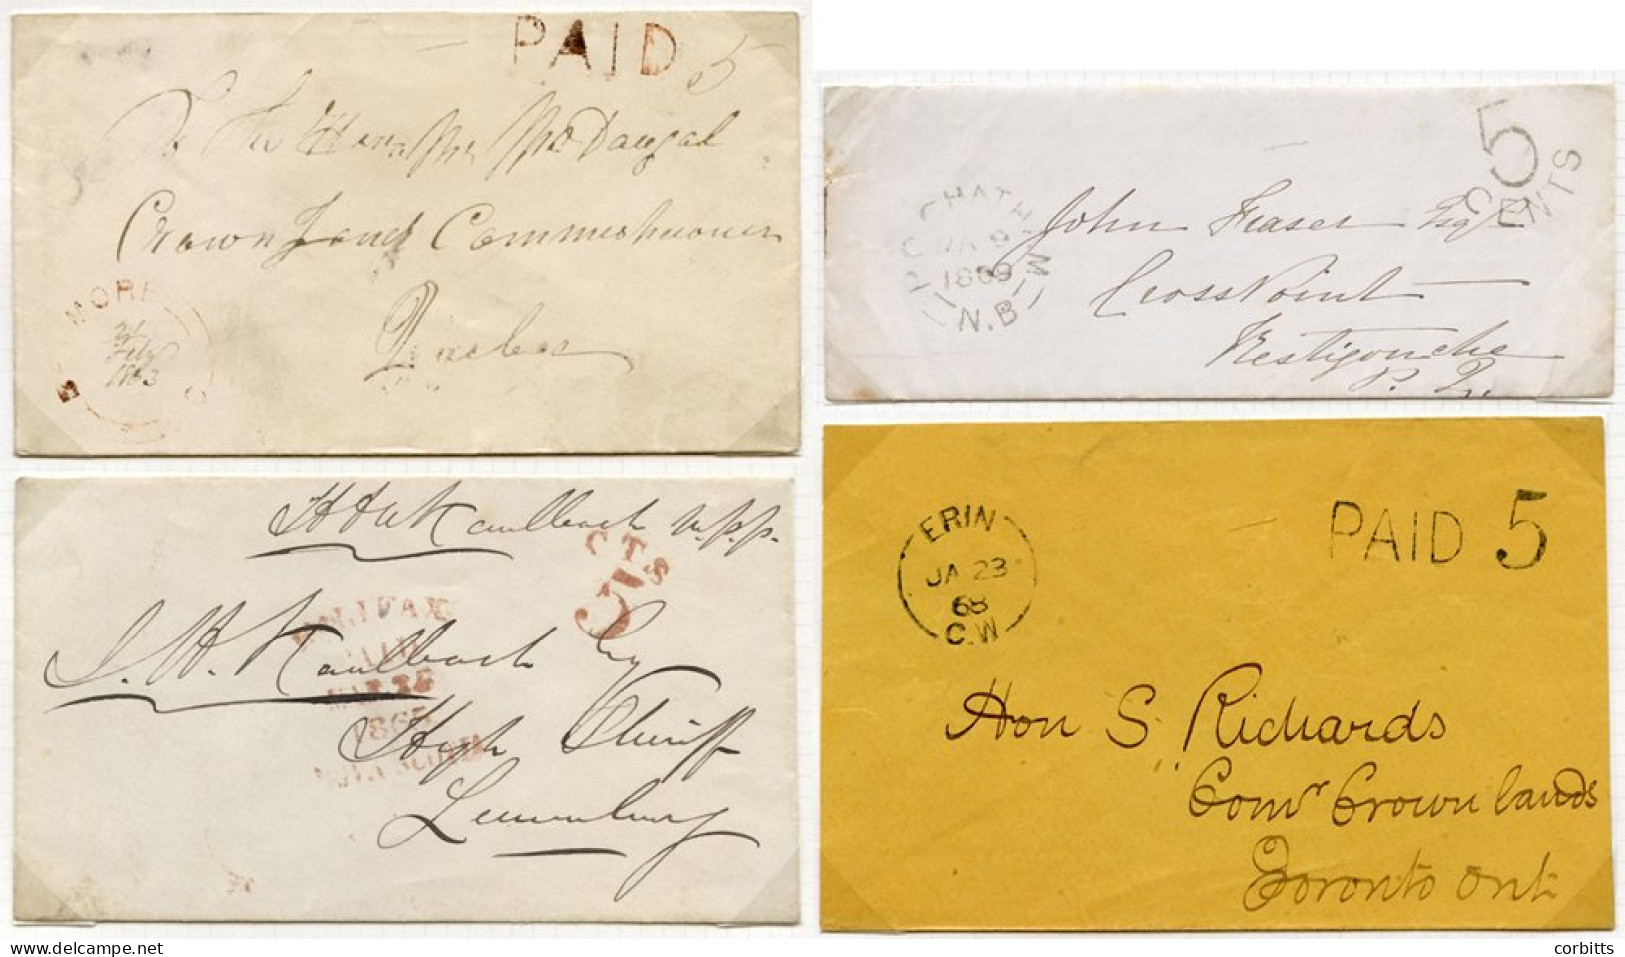 PAID 5
To The Hon. Mr McDougal
Crown Land Commissioner
Quebec
MORP
Feby
1863
5
CENTS
CHATHAM
1868
N.B
John Fraser Esqr
Cross Point
Restigouche
P. Q.
H A N Kaulbach M.P.P.
CTS
5
HALIFAX
PAID
MAR 25
1865
NOVA SCOTIA
J. H. Kaulbach Esq
High Sheriff
Lunenburg
ERIN
JA 23
68
C.W
PAID 5
Hon S. Richards
Comr Crown Lands
Toronto Ont
corbitts